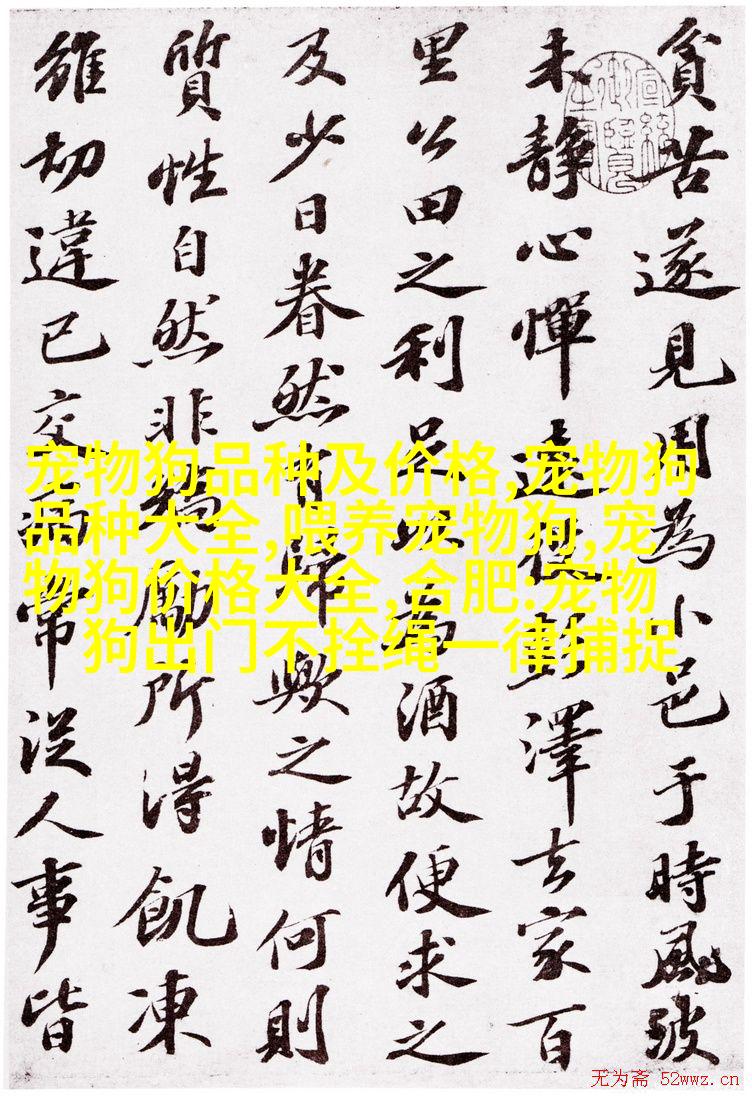 貧苦遂見用為小邑于時風波
未靜心憚遠役彭澤去家百
里公田之利足以為酒故便求之
及少日眷然有歸歟之情何則
質性自然非矯勵所得飢凍
雖切違已交病常從人事皆
宠物狗品种及价格,宠物狗
品种大全,喂养宠物狗,宠
物狗价格大全,合肥:宠物
狗出门不拴绳一律捕捉
无为斋 52wwz.cn